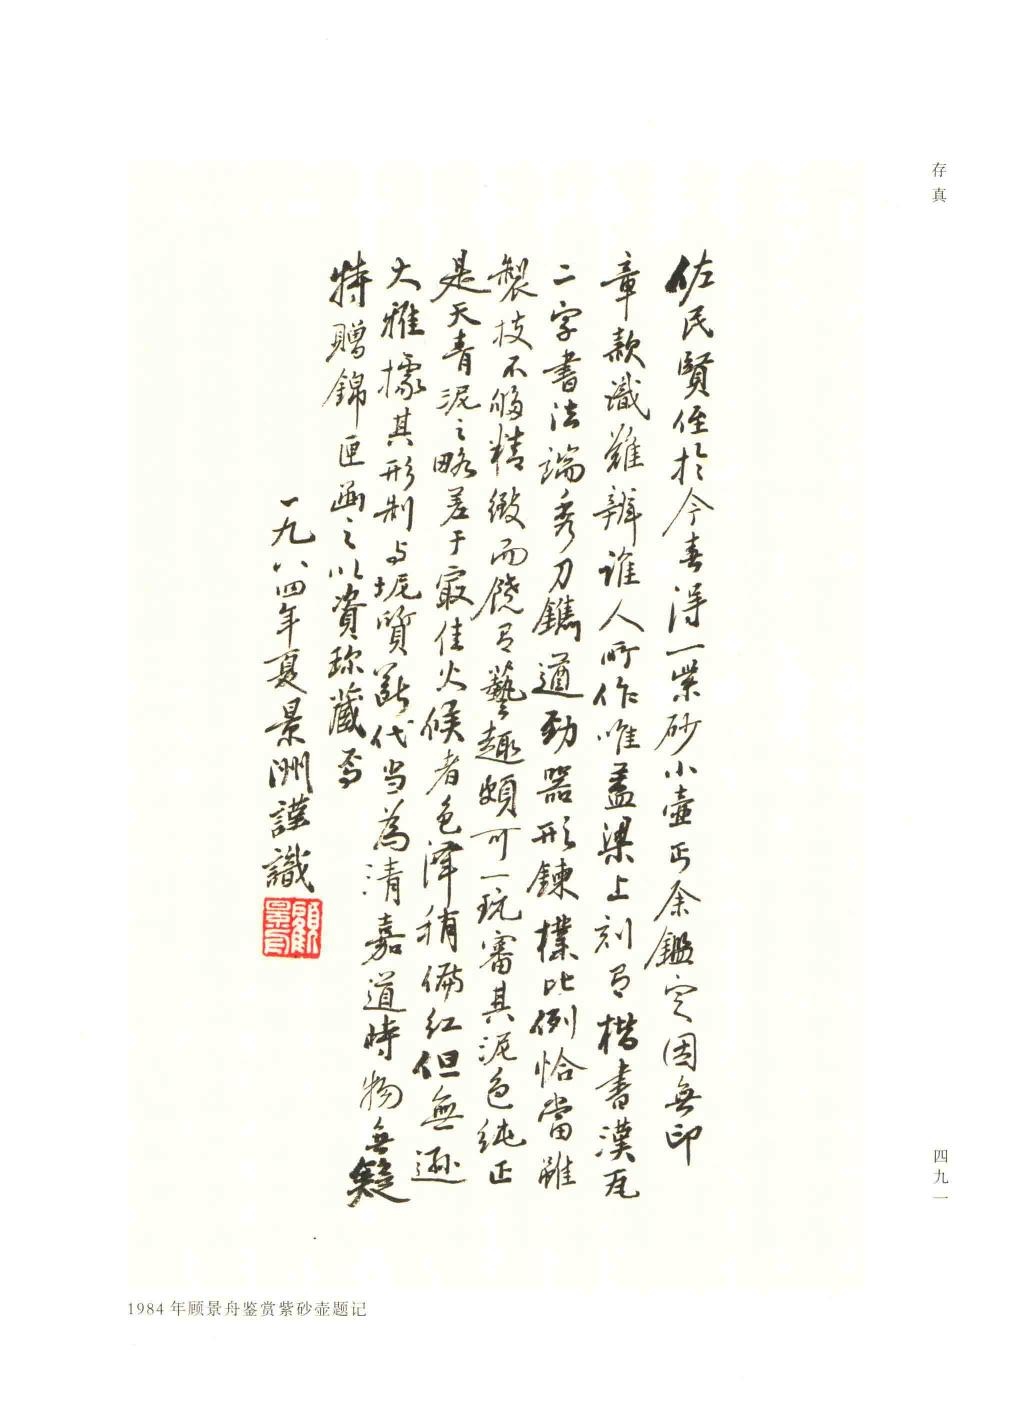 存真
佐民賢侄於今春得一紫砂小壺丐余鑑定因無印
章款識難辨誰人所作唯蓋梁上刻有楷書漢瓦
二字書法端秀刀鐫遒勁器形鍊樸比例恰當雖
製技不够精緻而饒有藝趣頗可一玩審其泥色純正
是天青泥之略差于最佳火候者色澤稍偏紅但無遜
大雅據其形制与坭質斷代当為清嘉道時物無疑
特贈錦匣函之以資珍藏焉
一九八四年夏景洲謹識
顧景舟
四九一
1984年顾景舟鉴赏紫砂壶题记